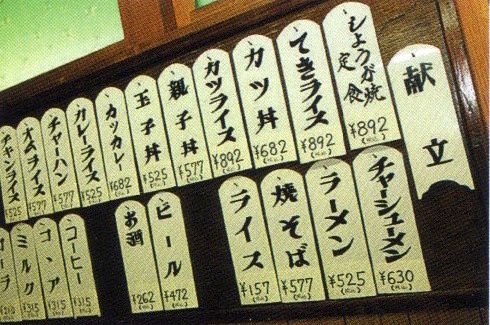 献立
しょうが焼定食 ¥892
てきライス ¥892
カツ丼 ¥682
カツライス ¥892
親子丼 ¥577
玉子丼 ¥525
カツカレー ¥682
カレーライス ¥525
チャーハン ¥577
オムライス ¥577
チキンライス ¥525
チャーシューメン ¥630
ラーメン ¥525
焼そば ¥577
ライス ¥157
ビール ¥472
お酒 ¥262
コーヒー ¥315
ココア ¥315
ミルク ¥315
コーラ ¥210